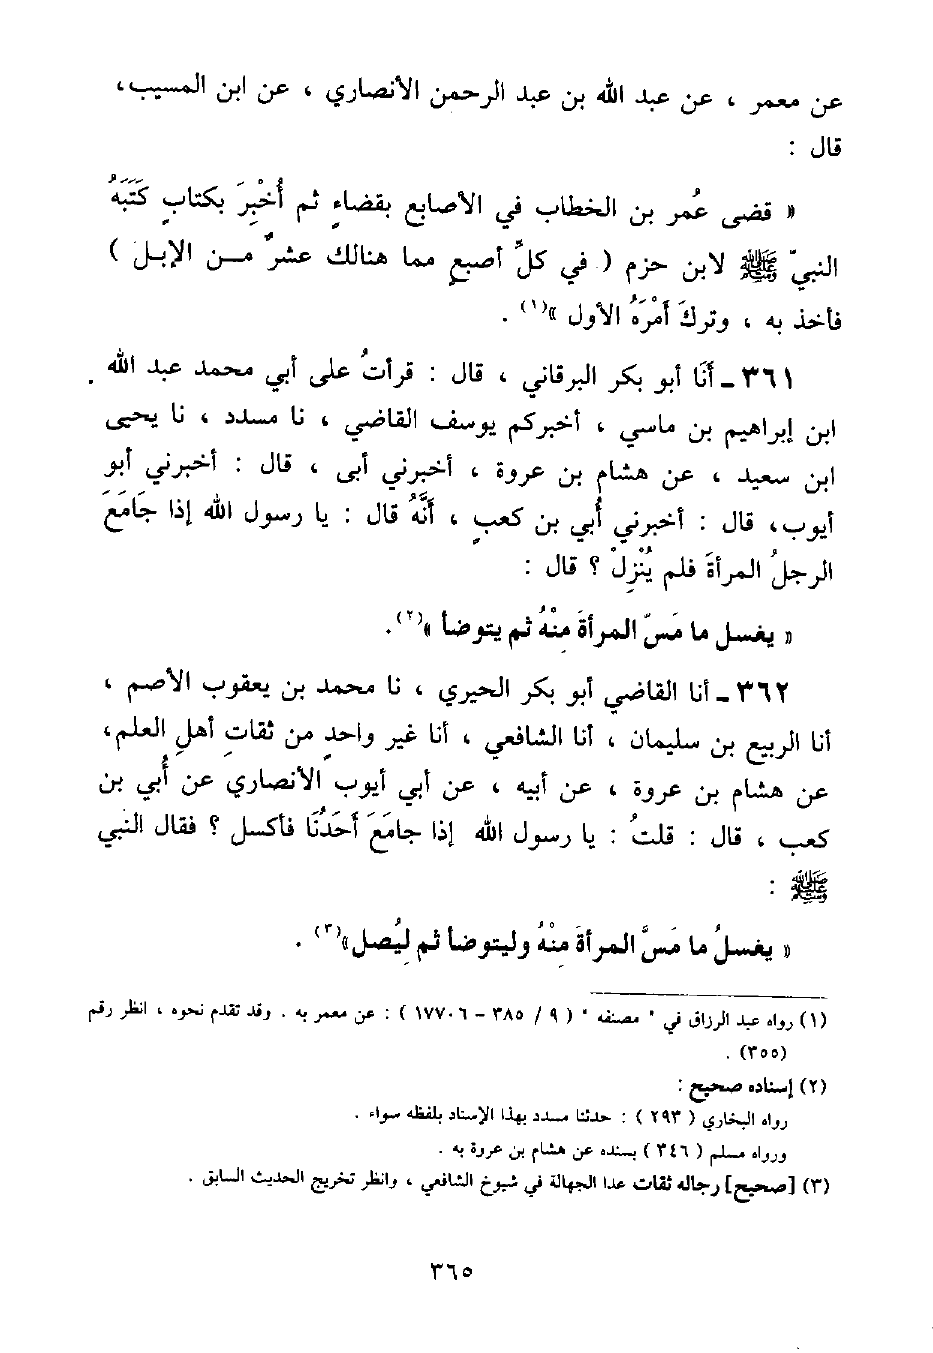 عن معمر ، عن عبد الله بن عبد الرحمن الأنصاري ، عن ابن المسيب،
قال :
« قضى عُمر بن الخطاب في الأصابع بقضاءٍ ثم أُخْبِرَ بكتابٍ كَتَبَهُ
النبيّ ﷺ لابن حزم ( في كلِّ أصبعٍ مما هنالك عشرٌ مــن الإبــل )
فأخذ به ، وتركَ أمْرَهُ الأول »(١) .
٣٦١ ـ أنَا أبو بكر البرقاني ، قال : قرأتُ على أبي محمد عبد الله
ابن إبراهيم بن ماسي ، أخبركم يوسف القاضي ، نا مسدد ، نا يحيى
ابن سعيد ، عن هشام بن عروة ، أخبرني أبى ، قال : أخبرني أبو
أيوب، قال : أخبرني أُبي بن كعبٍ ، أنَّهُ قال : يا رسول الله إذا جَامَعَ
الرجلُ المرأةَ فلم يُنْزِلْ ؟ قال :
« يغسل ما مَسّ المرأةَ مِنْهُ ثم يتوضأ »(٢).
٣٦٢ ـ أنا القاضي أبو بكر الحيري ، نا محمد بن يعقوب الأصم ،
أنا الربيع بن سليمان ، أنا الشافعي ، أنا غير واحدٍ من ثقاتِ أهلِ العلم،
عن هشام بن عروة ، عن أبيه ، عن أبي أيوب الأنصاري عن أُبي بن
كعب ، قال : قلتُ : يا رسول الله إذا جامَعَ أحَدُنَا فأكسل ؟ فقال النبي
ﷺ :
« يغسلُ ما مَسَّ المرأةَ مِنْهُ وليتوضأ ثم ليُصل»(٣) .
(١) رواه عبد الرزاق في " مصنفه " ( ٩ / ٣٨٥ – ١٧٧٠٦ ) : عن معمر به . وقد تقدم نحوه ، انظر رقم
(٣٥٥) .
(٢) إسناده صحيح :
رواه البخاري ( ٢٩٣ ) : حدثنا مسدد بهذا الإسناد بلفظه سواء .
ورواه مسلم ( ٣٤٦ ) بسنده عن هشام بن عروة به .
(٣) [صحيح] رجاله ثقات عدا الجهالة في شيوخ الشافعي ، وانظر تخريج الحديث السابق .
٣٦٥